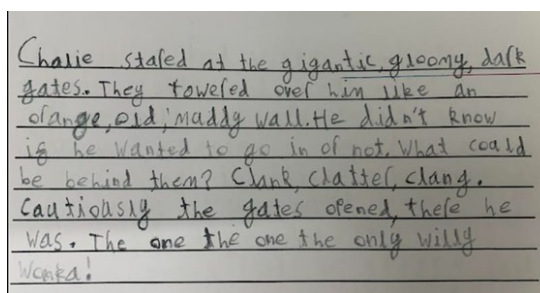 Chalie stared at the gigantic, gloomy, dark
gates. They towered over him like an
orange, old, muddy wall. He didn't know
if he wanted to go in or not. What could
be behind them? Clank, clatter, clang.
Cautiously the gates opened, there he
was. The one the one the only willy
Wonka!